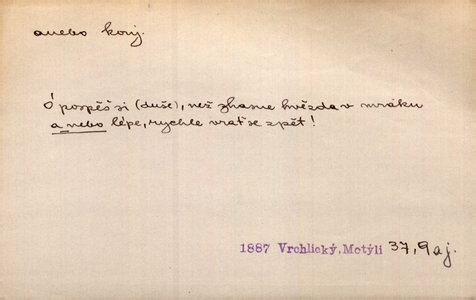 anebo konj.
Ó pospěš si (duše), než zhasne hvězda v mráku
a nebo lépe, rychle vrať se zpět!
1887 Vrchlický, Motýli 37, 9 aj.